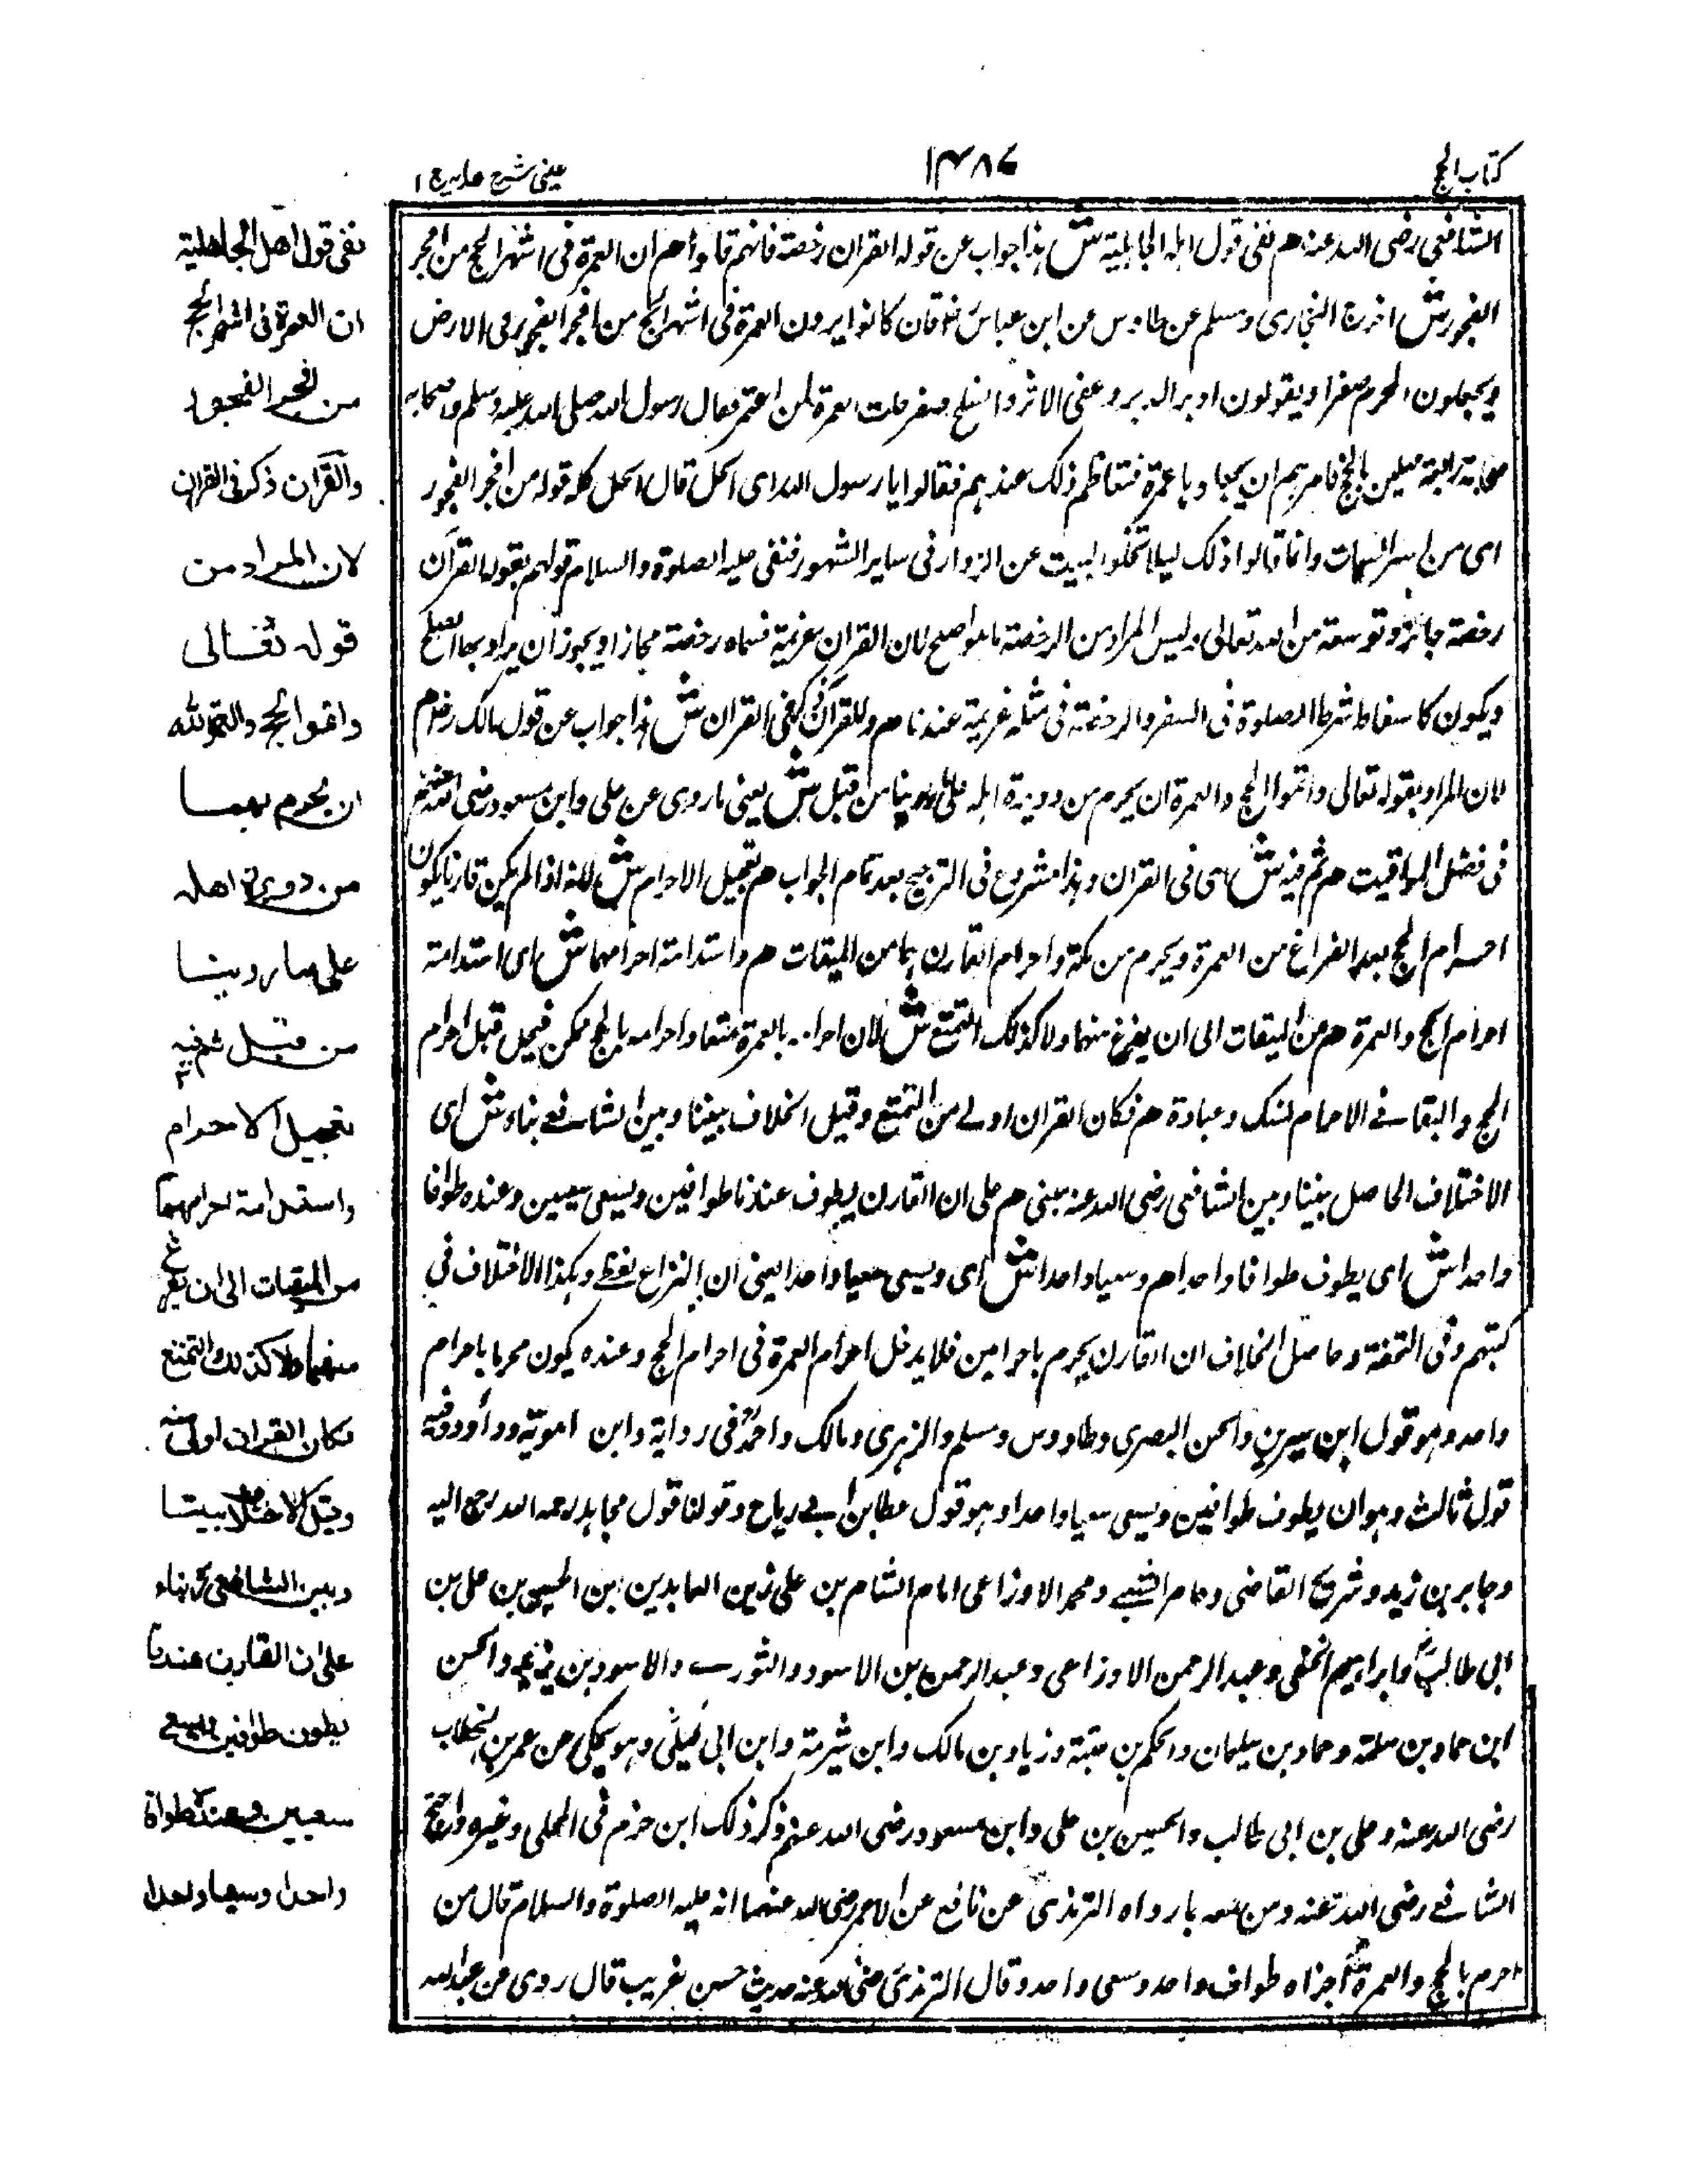 كتاب الحج
١٤٨٧
عينى شرح هدايه ج ١
الشافعى رضى الله عنه هم نفى قول اهل الجاهلية ش هذا جواب عن قوله القران رخصة فانهم قالوا هم ان العمرة فى اشهر الحج من افجر
الفجور ش اخرج البخارى ومسلم عن طاوس عن ابن عباس قال كانوا يرون العمرة فى اشهر الحج من افجر الفجور فى الارض
ويجعلون المحرم صفرا ويقولون اذا برا الدبر وعفى الاثر وانسلخ صفر حلت العمرة لمن اعتمر فقال رسول الله صلى الله عليه وسلم واصحابه
صبيحة رابعة مهلين بالحج فامرهم ان يجعلوها عمرة فتعاظم ذلك عندهم فقالوا يا رسول الله اى الحل قال الحل كله قوله من افجر الفجور
اى من اسر السيات وانما قالوا ذلك ليلا تخلوا لبيت عن الزوار فى ساير الشهور فنفى عليه الصلوة والسلام قولهم بقوله القران
رخصة جائزة وتوسعة من الله تعالى وليس المراد من الرخصة ما هو اصطلح لان القران عزيمة فسماه رخصة مجازا ويجوز ان يراد بها المصطلح
ويكون كاسقاط شرط الصلوة فى السفر والرخصة فى مثله عزيمة عندنا هم وللقران ذكر فى القران ش هذا جواب عن قول مالك رح هم
لان المراد بقوله تعالى واتموا الحج والعمرة ان يحرم من دويرة اهله على ما روينا من قبل ش يعنى ما روى عن على وابن مسعود رضى الله عنهم
فى فضل المواقيت هم ثم فيه ش اى فى القران وهذا مشروع فى الترجيح بعد تمام الجواب هم تعجيل الاحرام ش لانه اذا لم يكن قارنا يكون
احرام الحج بعد الفراغ من العمرة ويحرم من مكة واحرام القارن بهما من الميقات هم واستدامة احرامهما ش اى استدامة
احرام الحج والعمرة هم من الميقات الى ان يفرغ منهما ولا كذلك التمتع ش لان احرامه بالعمرة متعا واحرامه بالحج مكى فيحل قبل احرام
الحج والبقا فى الاحرام نسك وعبادة هم فكان القران اولى من التمتع وقيل الخلاف بيننا وبين الشافعى بناء ش اى
الاختلاف الحاصل بيننا وبين الشافعى رضى الله عنه مبنى هم على ان القارن يطوف عندنا طوافين ويسعى سعيين وعنده طوافا
واحدا ش اى يطوف طوافا واحدا هم وسعيا واحدا ش اى ويسعى سعيا واحدا يعنى ان النزاع لفظى وهكذا الاختلاف فى
كتبهم وفى التحفة وحاصل الخلاف ان القارن يحرم باحرامين فلا يدخل احرام العمرة فى احرام الحج وعنده يكون محرما باحرام
واحد وهو قول ابن سيرين والحسن البصرى وطاووس ومسلم والزهرى ومالك واحمد فى رواية وابن وداود وفيه
قول ثالث وهو ان يطوف طوافين ويسعى سعيا واحدا وهو قول عطا بن ابى رباح وقولنا قول مجاهد رحمه الله رجع اليه
وجابر بن زيد وشريح القاضى وعامر الشعبى ومحمد الاوزاعى امام الشام بن على زين العابدين بن الحسين بن على بن
ابى طالب وابراهيم النخعى وعبد الرحمن الاوزاعى وعبد الرحمن بن الاسود والثورى والاسود بن يزيد والحسن
ابن حماد بن سلمة وحماد بن سليمان والحكم بن عتبة وزياد بن مالك وابن شبرمة وابن ابى ليلى وهو يحكى عن عمر بن الخطاب
رضى الله عنه وعلى بن ابى طالب والحسين بن على وابن مسعود رضى الله عنهم ذكر ذلك ابن حزم فى المحلى وغيره واحتج
الشافعى رضى الله عنه ومن معه بما رواه الترمذى عن نافع عن ابن عمر رضى الله عنهما انه عليه الصلوة والسلام قال من
احرم بالحج والعمرة اجزاه طواف واحد وسعى واحد وقال الترمذى رضى الله عنه حديث حسن غريب قال روى عن عبد الله
نفى قول اهل الجاهلية
ان العمرة فى اشهر الحج
من افجر الفجور
والقران ذكر فى القران
لان المراد من
قوله تعالى
واتموا الحج والعمرة لله
ان يحرم بهما
من دويرة اهله
على ما روينا
من قبل ثم فيه
تعجيل الاحرام
واستدامة احرامهما
من الميقات الى ان يفرغ
منهما ولا كذلك التمتع
فكان القران اولى منه
وقيل الاختلاف بيننا
وبين الشافعى رح بناء
على ان القارن عندنا
يطوف طوافين ويسعى
سعيين وعنده طوافا
واحدا وسعيا واحدا